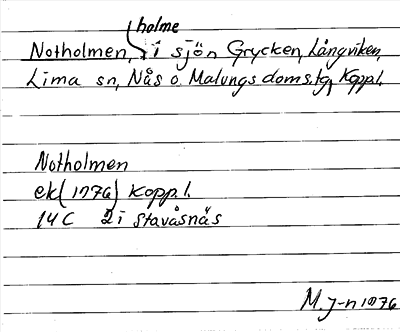 holme
Notholmen, i sjön Grycken, Långviken,
Lima sn, Nås o. Malungs doms.tg, Kopp.l.
Notholmen
ek (1976) Kopp. l.
14 C 2 i Stavåsnäs
M. J-n 1976